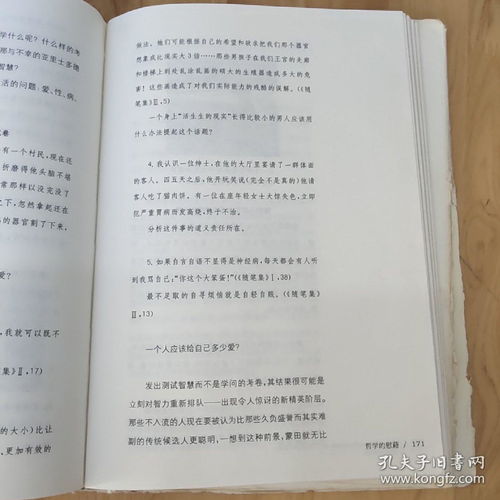 学什么呢？什么样的考
那与不幸的亚里士多德
智慧？
活的问题：爱、性、病、
卷
有一个村民，现在还
折磨得他头脑不堪
常那样以没完没了
之下，忽然拿起还在
的器官割了下来，
爱？
我就可以既不
集》Ⅱ，17）
的大小）比让
更加有效的
做法，他们可能根据自己的希望和欲求把我们那个器官
想象成比现实大3倍……那些男孩子在我们王宫的走廊
和楼梯上到处乱涂乱画的硕大的生殖器造成多大的危
害！这些画造成了对我们实际能力的残酷的误解。（《随
笔集》Ⅲ，5）
一个身上“活生生的现实”长得比较小的男人应该用
什么办法提起这个话题？
4．我认识一位绅士，在他的大厅里宴请了一群体面
的客人。四五天之后，他开玩笑说（完全不是真的）他请
客人吃了猫肉饼。有一位在座年轻女士大惊失色，立即
犯严重胃病而发高烧，终于不治。
分析这件事的道义责任所在。
5．如果自言自语不显得是神经病，每天都会有人听
到我骂自己，“你这个大笨蛋！”（《随笔集》Ⅰ，38）
最不足取的自寻烦恼就是自轻自贱。（《随笔集》
Ⅲ，13）
一个人应该给自己多少爱？
发出测试智慧而不是学问的考卷，其结果很可能是
立刻对智力重新排队——出现令人惊讶的新精英阶层。
那些不入流的人现在要被认为比那些久负盛誉而其实难
副的传统候选人更聪明，一想到这种前景，蒙田就无比
哲学的慰藉 / 171
孔夫子旧书网
www.kongfz.com